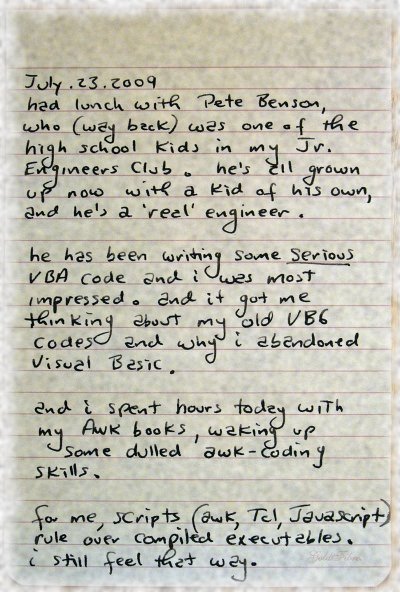 July.23.2009
had lunch with Pete Benson,
who (way back) was one of the
high school kids in my Jr.
Engineers Club. he's all grown
up now with a kid of his own,
and he's a 'real' engineer.
he has been writing some serious
VBA code and i was most
impressed. and it got me
thinking about my old VB6
codes and why i abandoned
Visual Basic.
and i spent hours today with
my Awk books, waking up
some dulled awk-coding
skills.
for me, scripts (awk, Tcl, Javascript)
rule over compiled executables.
i still feel that way.